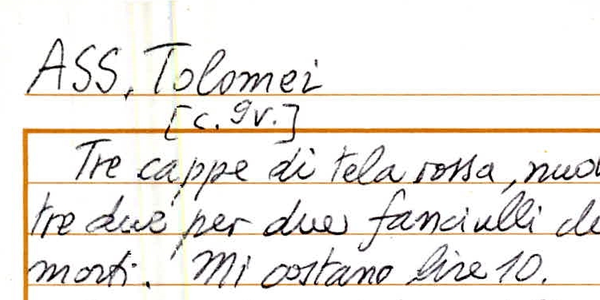 ASS, Tolomei
[c. 9v.]
Tre cappe di tela rossa, nuo
tre due per due fanciulli de
morti. Mi costano lire 10.